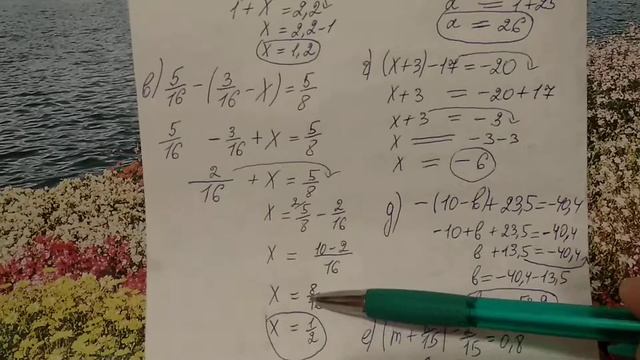 1 + x = 2,2
x = 2,2-1
x = 1,2
в) 5/16 - (3/16 - x) = 5/8
5/16 - 3/16 + x = 5/8
2/16 + x = 5/8
x = 5/8 - 2/16
x = 10-2/16
x = 8/16
x = 1/2
= 1+25
= 26
(x+3) -17 = -20
x+3 = -20+17
x+3 = -3
x = -3-3
x = -6
д) -(10-в)+23,5=-40,4
-10+в+23,5=-40,4
в+13,5=-40,4
в=-40,4-13,5
е)
= 0,8